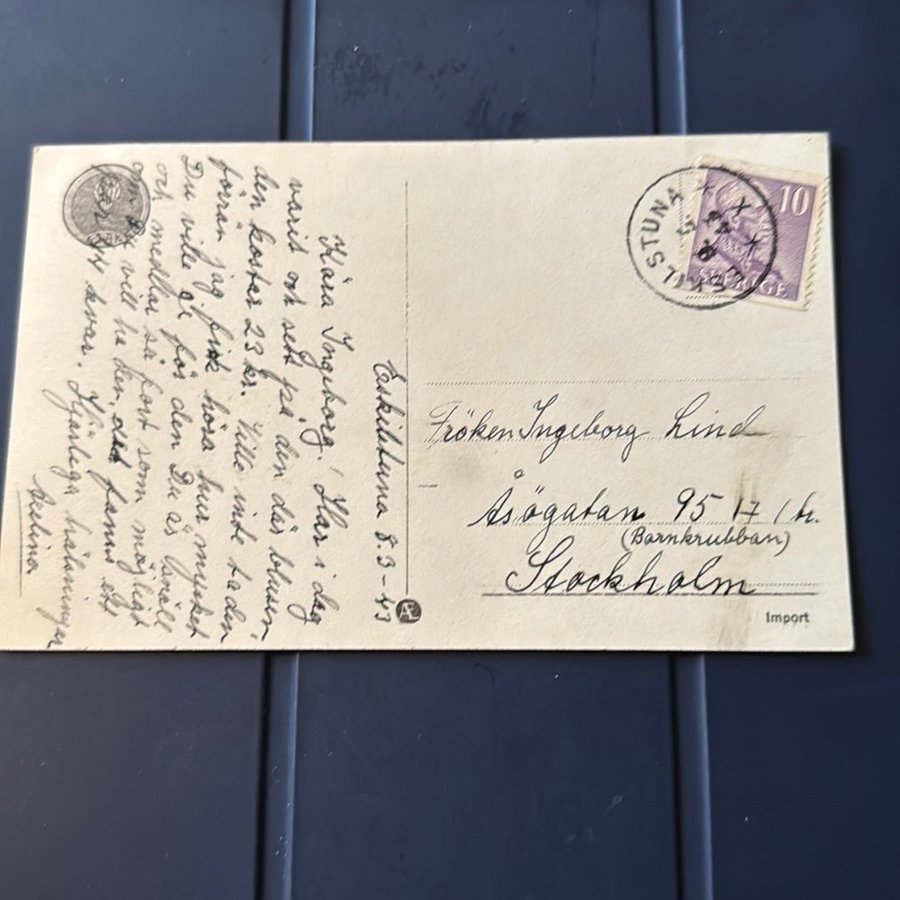 Eskilstuna 8.3-43
Kära Ingeborg! Har i dag
varit och sett på den där blusen,
den kostar 23 kr. Ville inte ta den
förrän jag fick höra hur mycket
Du ville ge för den. Du är snäll
och meddelar så fort som möjligt
om Du vill ha den, det fanns ett
par st kvar. Hjärtliga hälsningar
ESKILSTUNA
10
SVERIGE
Fröken Ingeborg Lind
Åsögatan 95 17 1 tr.
(Barnkrubban)
Stockholm
Import